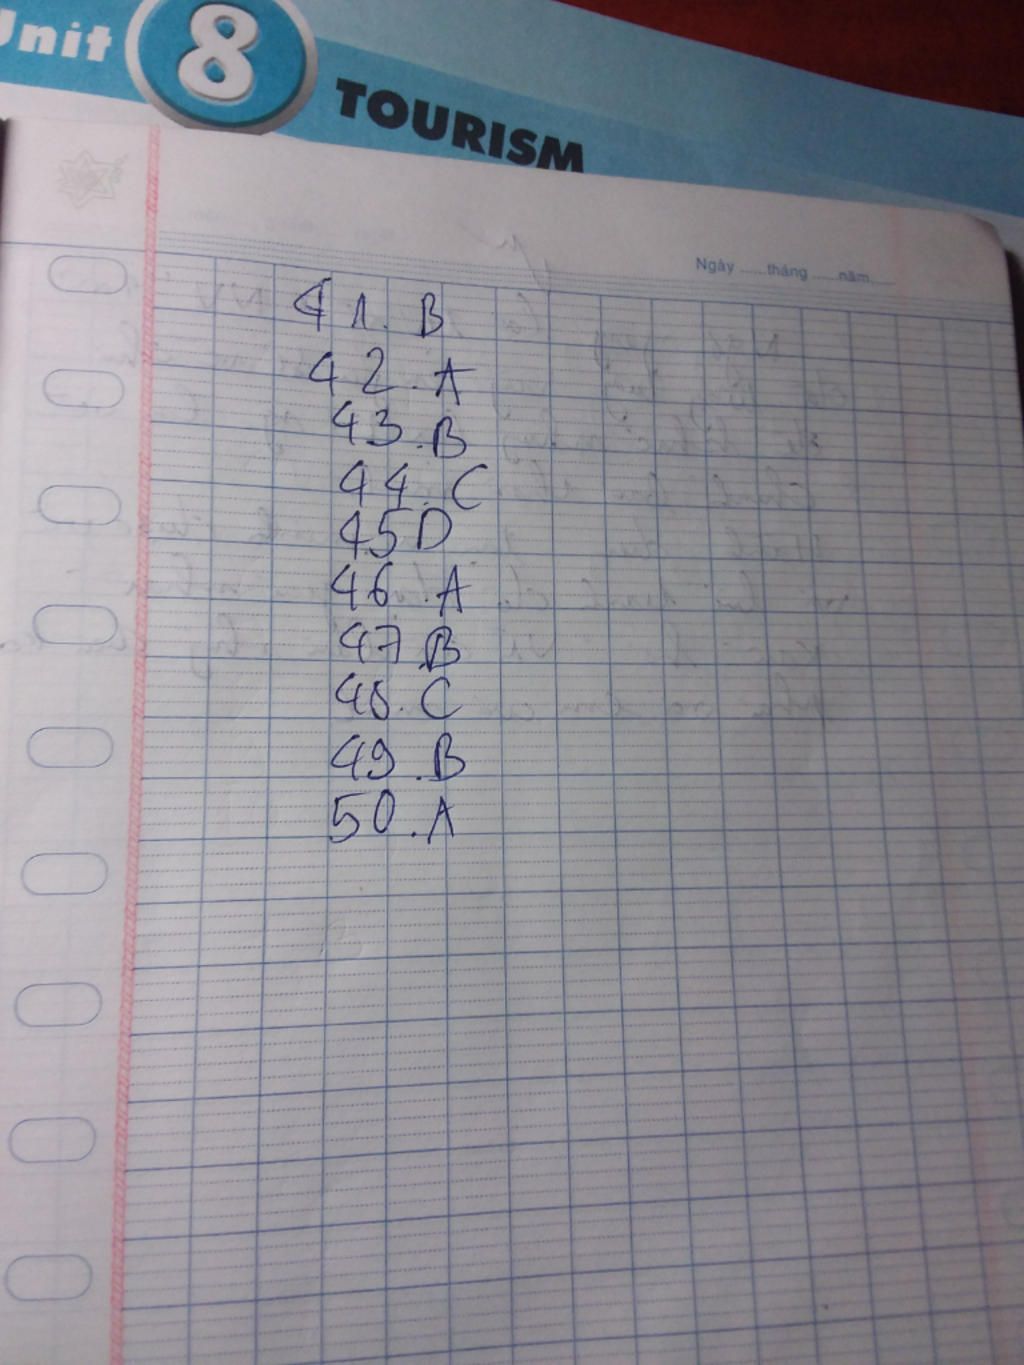 Unit 8 TOURISM
Ngày ......tháng ......năm......
41. B
42. A
43. B
44. C
45 D
46. A
47. B
48. C
49. B
50. A